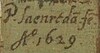 P. Saenredam fe.
Aº 1629